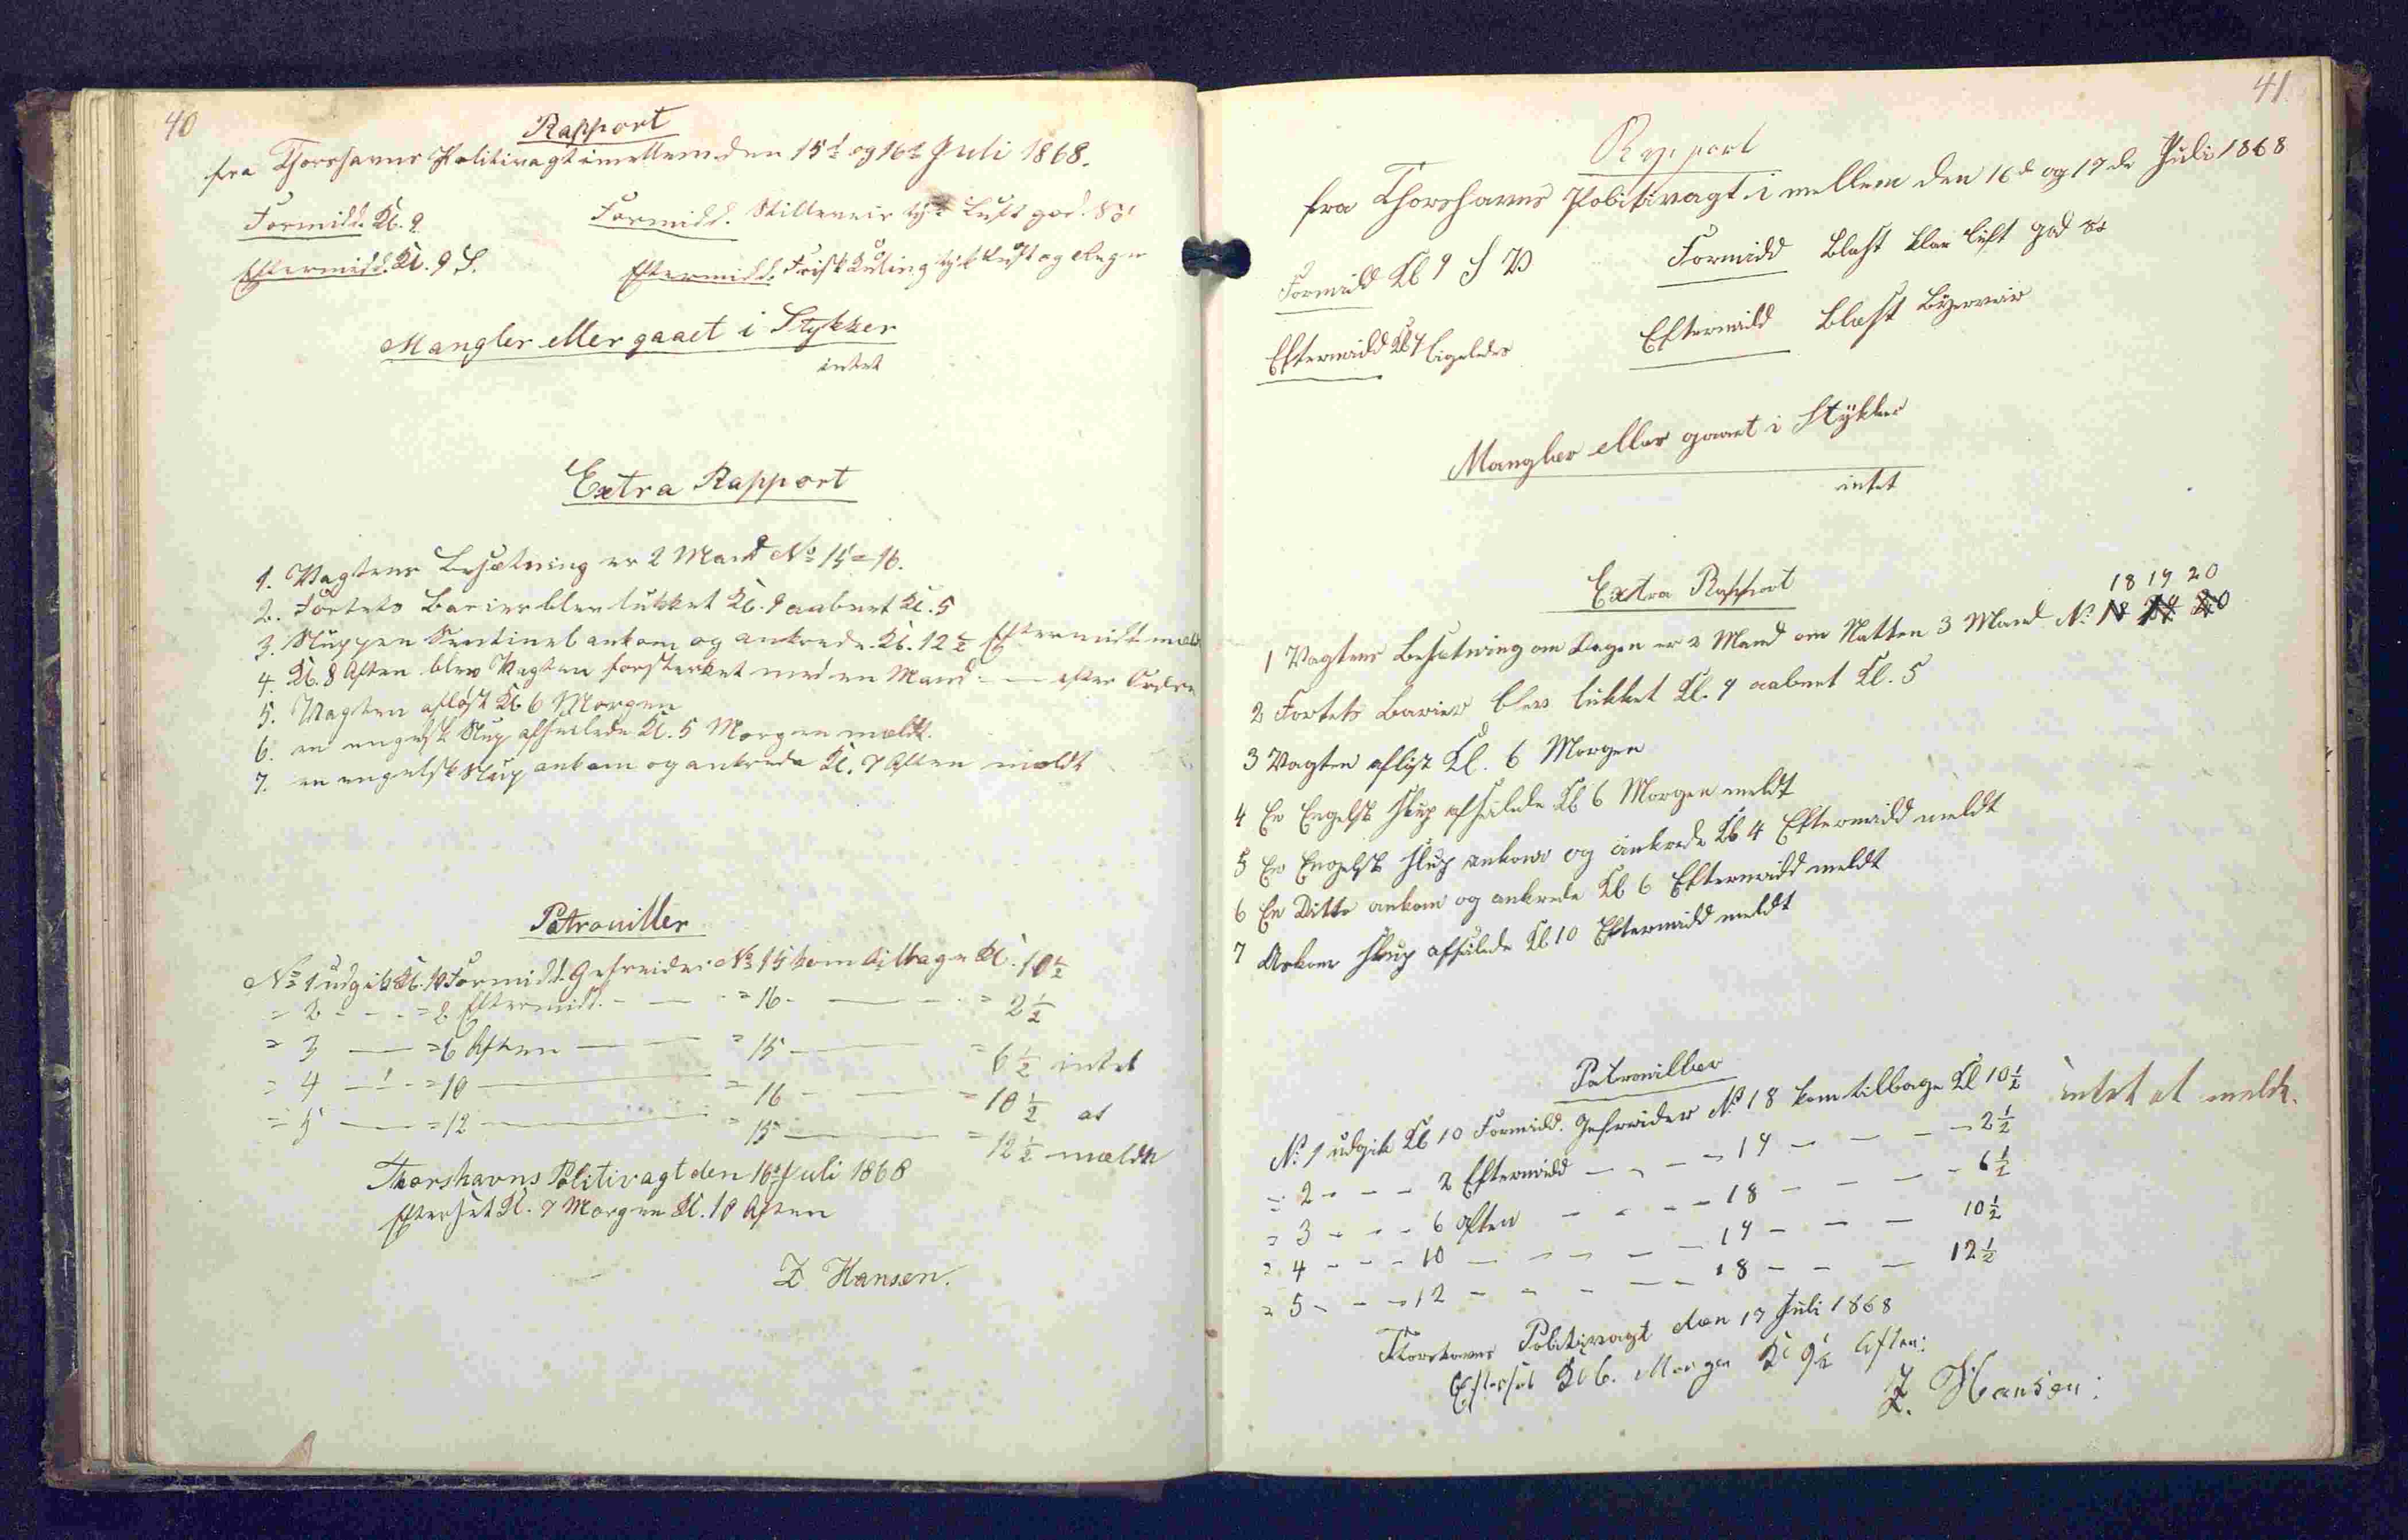 40
Rapport
fra Thorshavns Politivagt imellem den 15d og 16d Juli 1868.
Formidd. Kl. 9
Formidd. Stilleveir tyk Luft god Sø
Eftermidd. Kl. 9 S.
Eftermidd. Frisk Kuling tyk Luft og Regn
Mangler eller gaaet i Stykker
intet
Extra Rapport
1. Vagtens Besætning er 2 Mand No 15 = 16.
2. Fortets Barier blev lukket Kl. 9 aabnet Kl. 5
3. Sluppen Sentinel ankom og ankrede Kl. 12½ Eftermidt
4. Kl. 8 Aften blev Vagten forsterket med en Mand — efter Ordre
5. Vagten afløst Kl. 6 Morgen
6. en engelsk Slup afseilede Kl. 5 Morgen mældt.
7. en engelsk Slup ankom og ankrede Kl. 7 Aften mældt
Patrouiller
No 1 udgik Kl. 10 Formidd. Gefreider No 15 kom tilbage Kl. 10½
= 2 - - - = 2 Eftermidt. - — - = 16 - — - - = 2½
= 3 — = 6 Aften — — = 15 — = 6½ intet
= 4 — - = 10 — = 16 - — = 10½ at
= 5 — = 12 — = 15 — = 12½ mælde
Thorshavns Politivagt den 16d Juli 1868
Efterset Kl. 7 Morgen Kl. 10 Aften
Z. Hansen.
41
Rapport
fra Thorshavns Politivagt i mellem den 16d og 17de Juli 1868
Formidd Kl 9 S V
Formidd Blæst klar luft god Sø
Eftermidd Kl 9 ligeledes
Eftermidd Blæst
Mangler eller gaaet i Stykker
intet
Extra Rapport
18 19 20
1 Vagtens Besætning om Dagen er 2 Mand om Natten 3 Mand No
2 Fortets Barier blev lukket Kl. 9 aabnet Kl. 5
3 Vagten afløst Kl. 6 Morgen
4 En Engelsk Slup afseilede Kl 6 Morgen meldt
5 En Engelsk Slup ankom og ankrede Kl 4 Eftermidd meldt
6 En Ditto ankom og ankrede Kl 6 Eftermidd meldt
7 Slup afseilede Kl 10 Eftermidd meldt
Patrouiller
No 1 udgik Kl 10 Formidd. Gefreider No 18 kom tilbage Kl 10½ intet at melde.
= 2 - - - 2 Eftermidd - - - - 19 - - - - 2½
= 3 - - - 6 Aften - - - - 18 - - - - 6½
= 4 - - - 10 - - - - - 19 - - - 10½
= 5 - - - 12 - - - - - 18 - - - 12½
Thorshavns Politivagt den 17 Juli 1868
Efterset Kl 6. Morgen Kl 9½ Aften:
Z. Hansen: